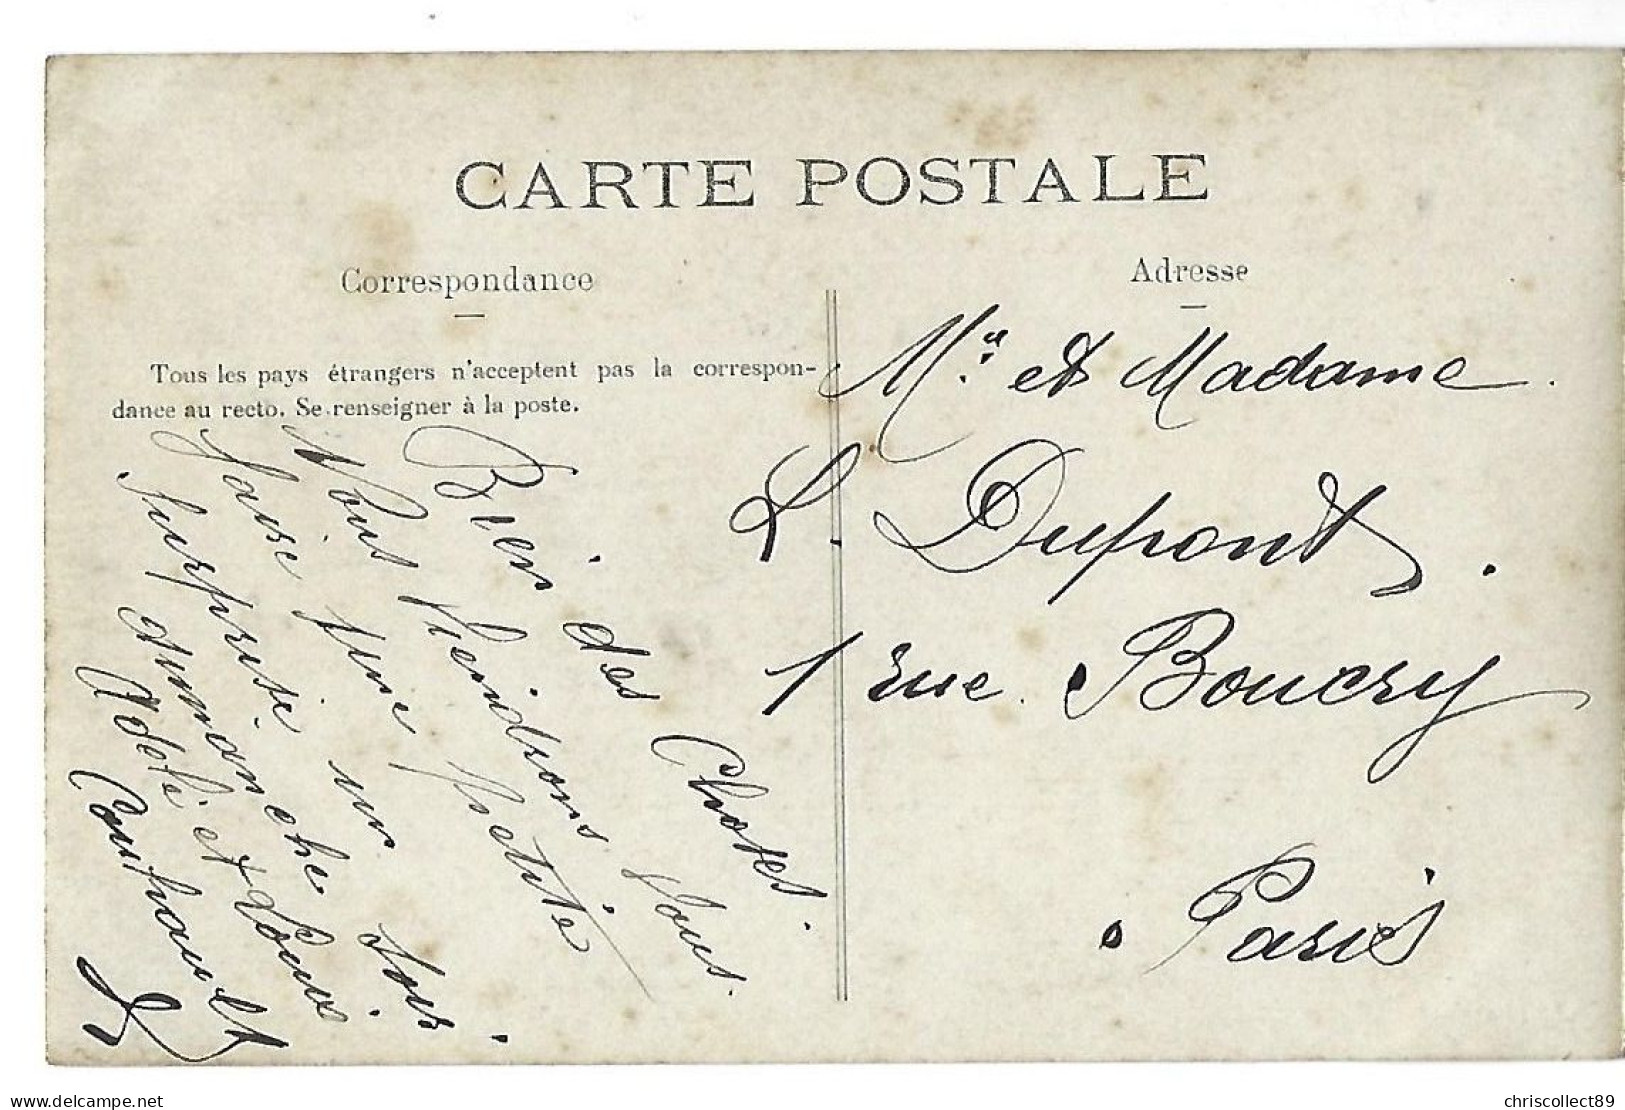 CARTE POSTALE
Correspondance
Tous les pays étrangers n'acceptent pas la correspon-
dance au recto. Se renseigner à la poste.
Bien des Choses.
Nous viendrons vous
faire une petite
surprise un
dimanche soir.
Adèle et Louis
Adresse
Mr. et Madame
L. Dupont.
1 rue Boucry
Paris
delcampe.net
chriscollect89